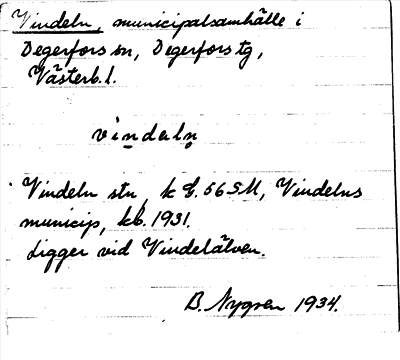 Vindeln, municipalsamhälle i
Degerfors sn, Degerfors tg,
Västerb. l.
vindeln
Vindeln stn, k G. 56 SM, Vindelns
municip, kb. 1931.
Ligger vid Vindelälven.
B. Nygren 1934.